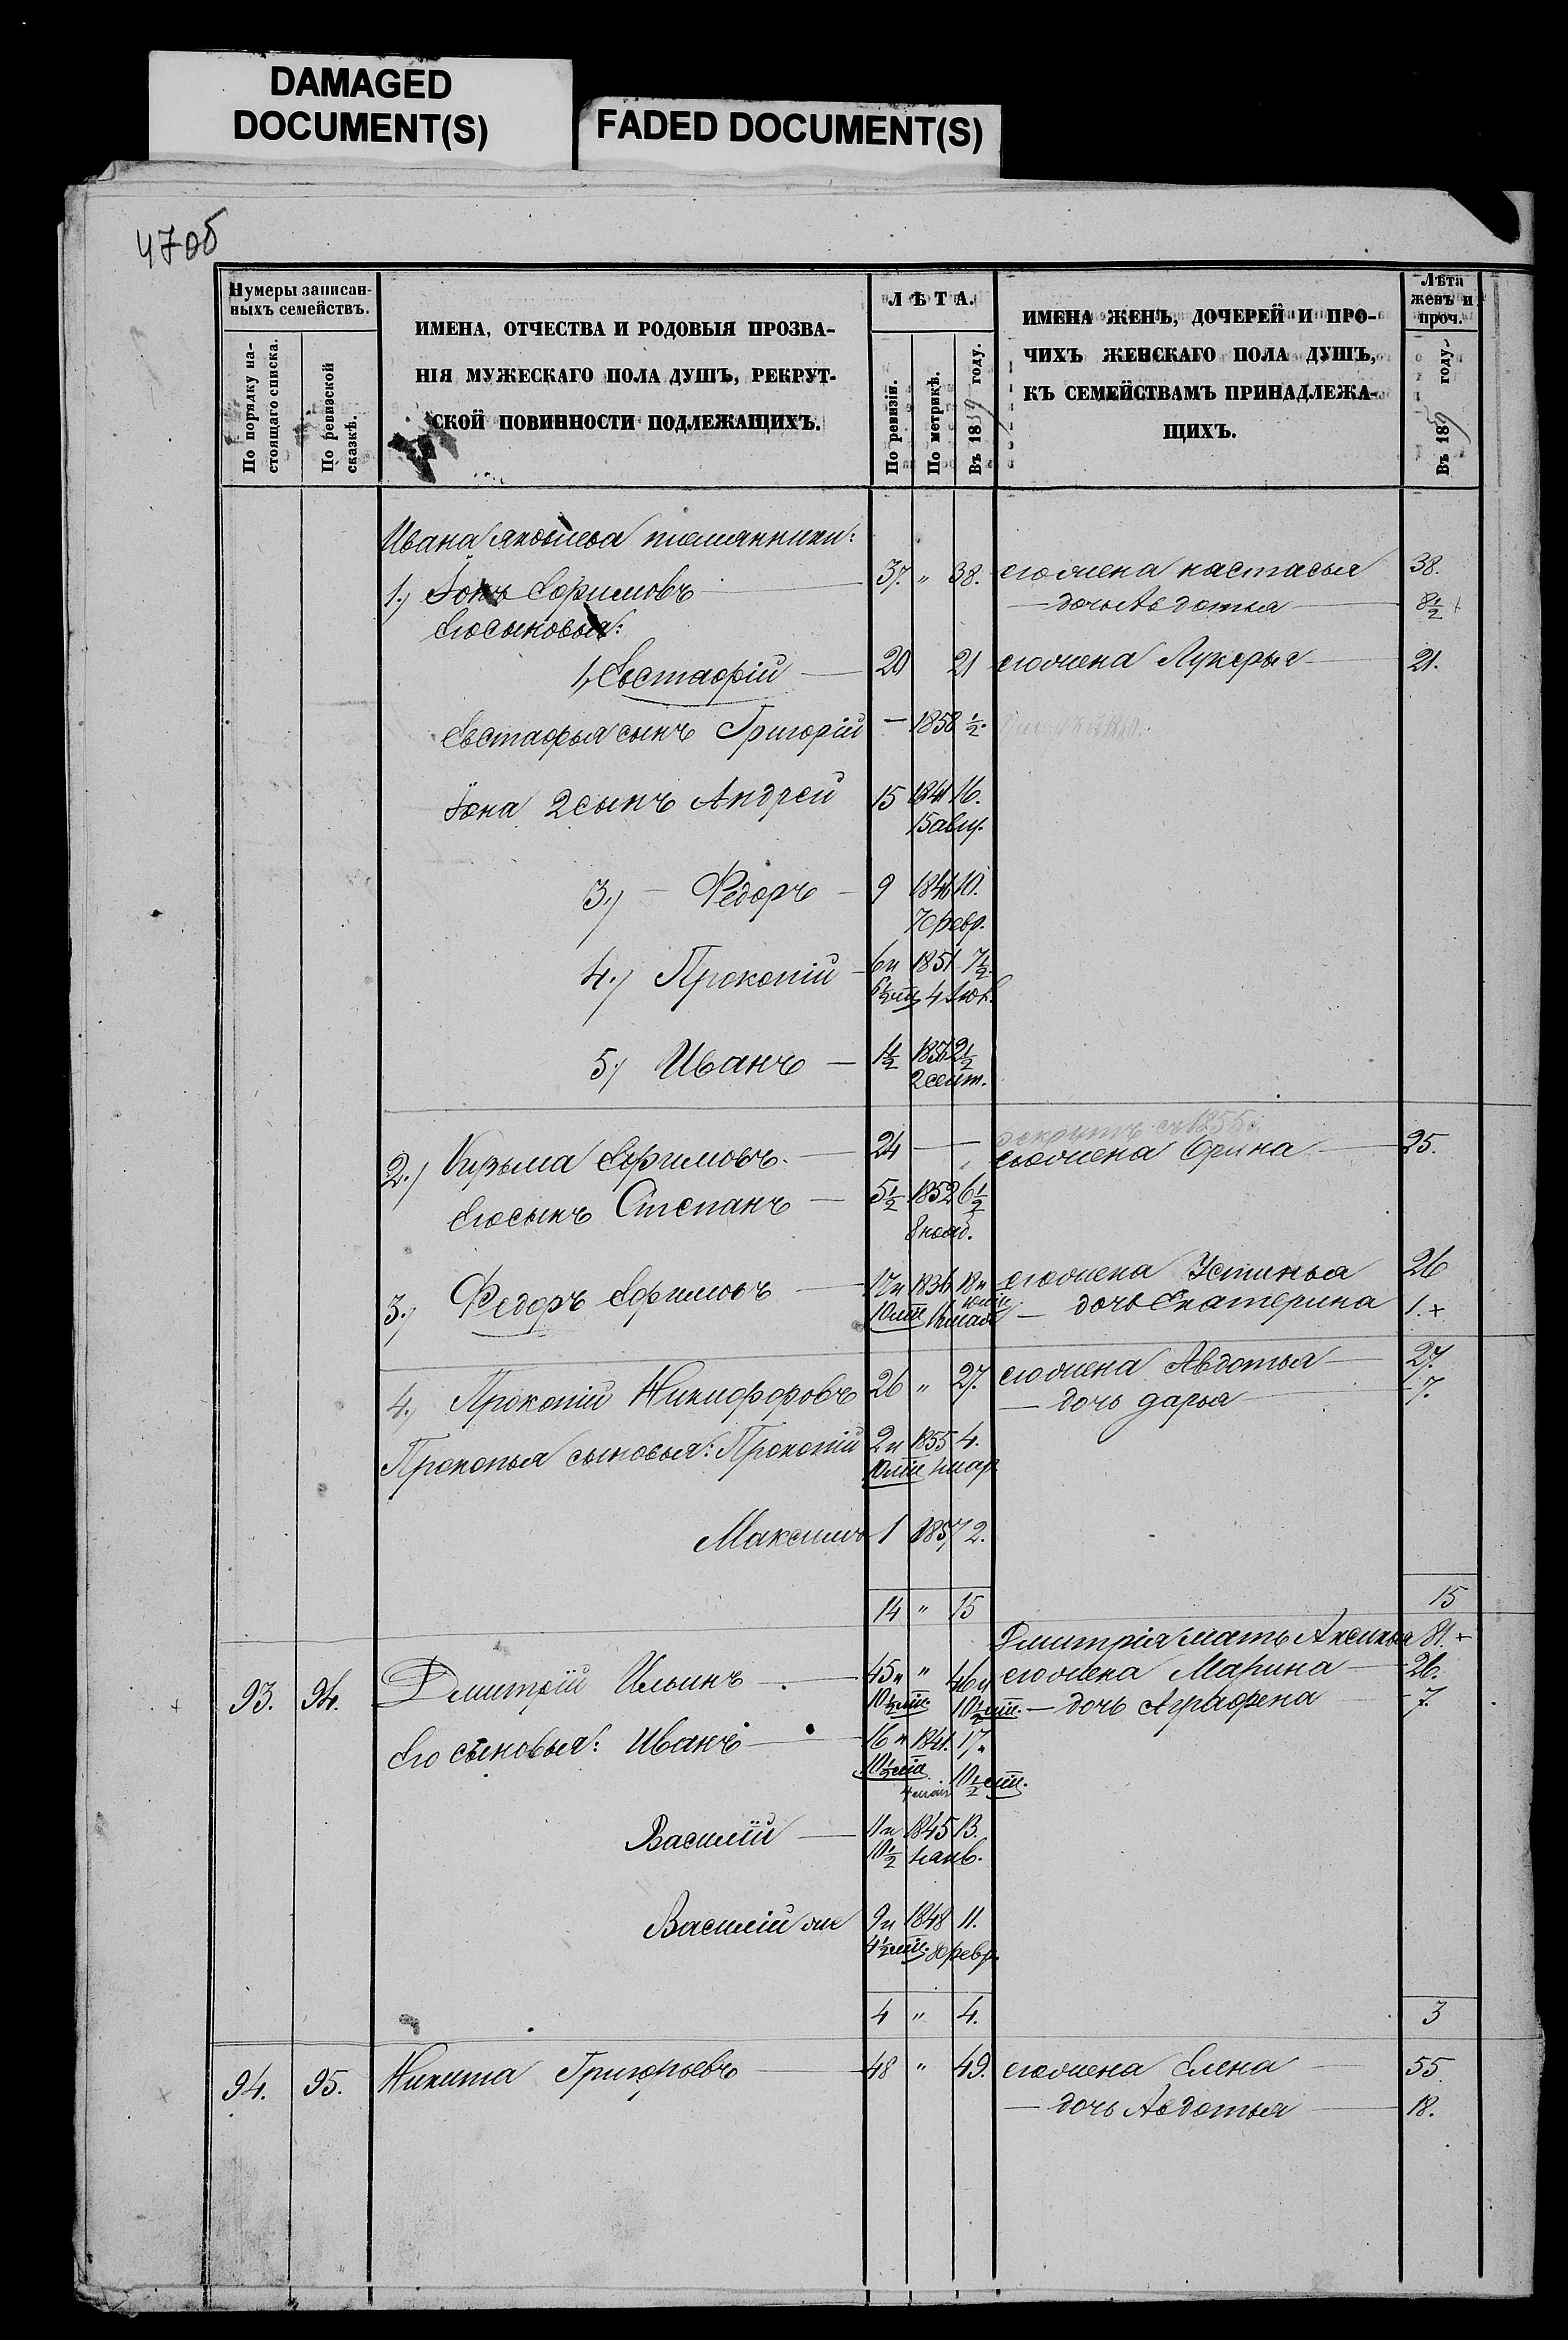 DAMAGED
DOCUMENT(S)
FADED DOCUMENT(S)
47об
Нумеры записан-
ныхъ семействъ.
По порядку на-
стоящаго списка.
По ревизской
сказкѣ.
ИМЕНА, ОТЧЕСТВА И РОДОВЫЯ ПРОЗВА-
НІЯ МУЖЕСКАГО ПОЛА ДУШЪ, РЕКРУТ-
СКОЙ ПОВИННОСТИ ПОДЛЕЖАЩИХЪ.
ЛѢТА.
По ревизіи.
По метрикѣ.
Въ 1859 году.
ИМЕНА ЖЕНЪ, ДОЧЕРЕЙ И ПРО-
ЧИХЪ ЖЕНСКАГО ПОЛА ДУШЪ,
КЪ СЕМЕЙСТВАМЪ ПРИНАДЛЕЖА-
ЩИХЪ.
Лѣта
женъ и
проч.
Въ 1859 году.
Ивана Яковлева племянники:
1.) Іонъ Ефимовъ 37. " 38. его жена Настасья 38.
— дочь Авдотья 8½ +
Его сыновья:
1, Евстафій 20 21 его жена Лукерья 21.
Евстафья сынъ Григорій — 1858 ½.
Іона 2 сынъ Андрей 15 1841 16.
15 авгу.
3.) — Федоръ 9 184 10.
7 февр.
4.) Прокопій 6 и 1851 7½
6½ мц. 4
5.) Иванъ 1½ 185 2½
2 сент.
рекрутъ съ 1855 г.
2.) Кузьма Ефимовъ 24 — — его жена Орина 25.
Его сынъ Степанъ 5½ 1852 6½
8 нояб.
3.) Федоръ Ефимовъ 17 и 183 18 и его жена Устинья 26
10 мц — дочь Екатерина 1. +
4.) Прокопій Никифоровъ 26 " 27. его жена Авдотья 27.
— дочь Дарья 7.
Прокопья сыновья: Прокопій 2 и 1855 4.
10 мц 1 мар
Максимъ 1 1857 2.
14 " 15 15
Дмитрія мать Аксинья 81. +
93. 94. Дмитрій Ильинъ 45 и " 46 и его жена Марина 26.
10½ мц. 10½ мц. — дочь Аграфена 7.
Его сыновья: Иванъ 16 и 1841. 17 и
10½ мц 10½ мц.
Василій 11 и 1845 13.
10½ 1 янв.
Василій же 9 и 1848 11.
4½ мц. февр.
4 " 4. 3
94. 95. Никита Григорьевъ 48 " 49. его жена Елена 55.
— дочь Авдотья 18.